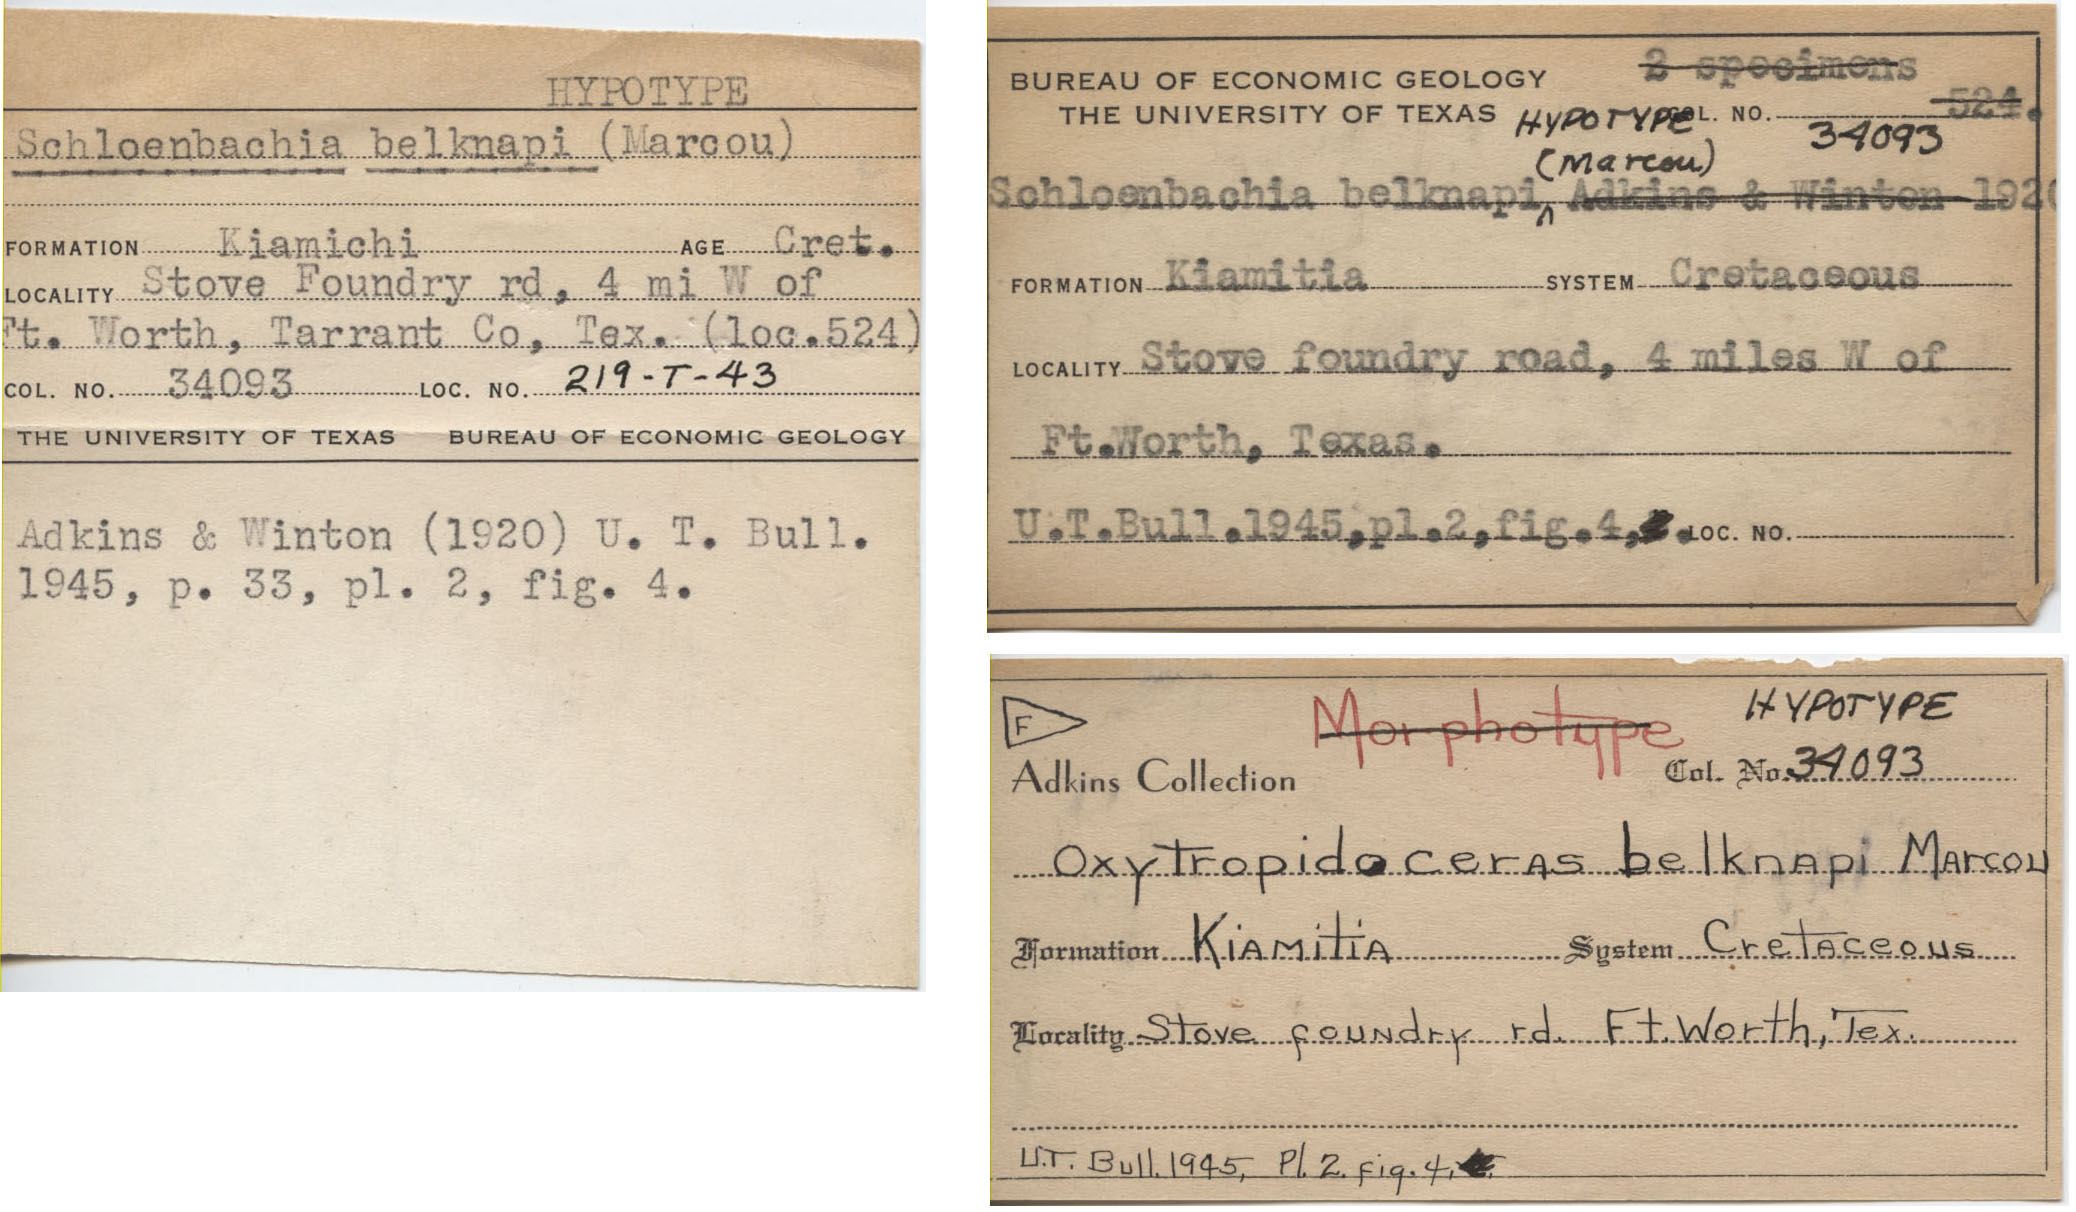 HYPOTYPE
Schloenbachia belknapi (Marcou)
FORMATION Kiamichi AGE Cret.
LOCALITY Stove Foundry rd, 4 mi W of
Ft. Worth, Tarrant Co, Tex. (loc.524)
COL. NO. 34093 LOC. NO. 219-T-43
THE UNIVERSITY OF TEXAS BUREAU OF ECONOMIC GEOLOGY
Adkins & Winton (1920) U. T. Bull.
1945, p. 33, pl. 2, fig. 4.
2 specimens
BUREAU OF ECONOMIC GEOLOGY
THE UNIVERSITY OF TEXAS HYPOTYPE COL. NO. 524.
34093
(Marcou)
Schloenbachia belknapi, Adkins & Winton 1920
FORMATION Kiamitia SYSTEM Cretaceous
LOCALITY Stove foundry road, 4 miles W of
Ft.Worth, Texas.
U.T.Bull.1945,pl.2,fig.4, LOC. NO.
F Morphotype HYPOTYPE
Adkins Collection Col. No. 34093
Oxytropidoceras belknapi Marcou
Formation Kiamitia System Cretaceous
Locality Stove foundry rd. Ft. Worth, Tex.
U.T. Bull. 1945, Pl. 2. fig. 4,